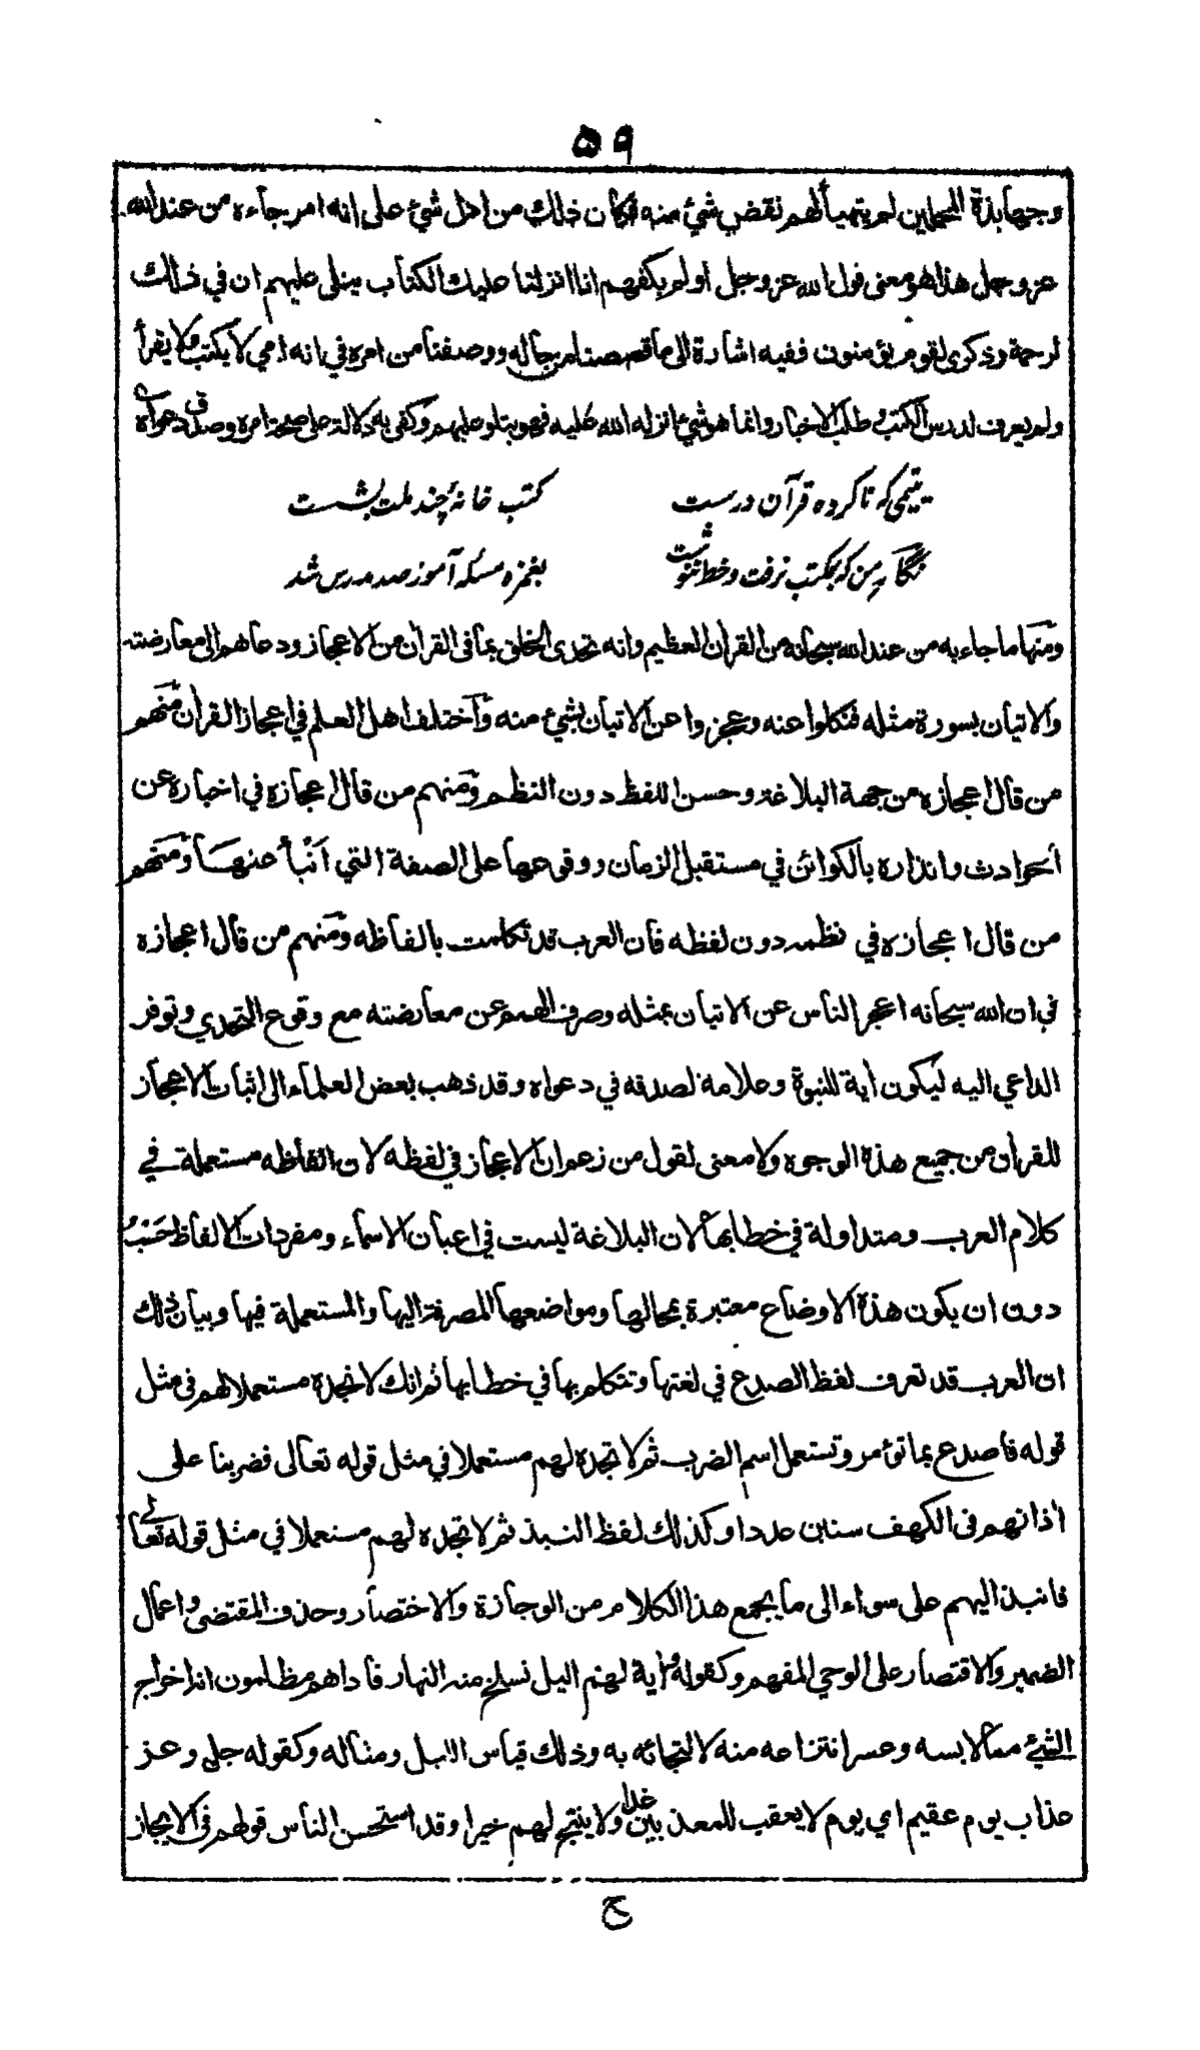 ٥٩
وجهابذة المتجملين لم يتهيأ لهم نقض شئ منه فكان ذلك من ادل شئ على انه امر جاءه من عند الله
عز وجل هذا هو معنى قول الله عز وجل اولم يكفهم انا انزلنا عليك الكتاب يتلى عليهم ان في ذالك
لرحمة وذكرى لقوم يؤمنون ففيه اشارة الى ما قصصنا من حاله ووصفنا من امره في انه امي لا يكتب ولا يقرأ
ولم يعرف لدرس الكتب وطلب الاخبار وانما هو شئ انزله الله عليه فهو يتلو عليهم وكفى به دلالة على صحة امره وصدق دعواه
يتيمى كه ناكرده قرآن درست کتب خانۂ چند ملت بشست
نگار من كه بمكتب نرفت وخط ننوشت بغمزه مسئله آموز صد مدرس شد
ومنها ما جاء به من عند الله سبحانه من القران العظيم وانه تحدى الخلق بما فى القران من الاعجاز ودعاهم الى معارضته
والاتيان بسورة مثله فنكلوا عنه وعجزوا عن الاتيان بشئ منه واختلف اهل العلم في اعجاز القران فمنهم
من قال اعجازه من جهة البلاغة وحسن اللفظ دون النظم ومنهم من قال اعجازه في اخباره عن
الحوادث وانذاره بالكوائن في مستقبل الزمان ووقوعها على الصفة التي انبأ عنها ومنهم
من قال اعجازه في نظمه دون لفظه فان العرب قد تكلمت بالفاظه ومنهم من قال اعجازه
في ان الله سبحانه اعجز الناس عن الاتيان بمثله وصرف الهمم عن معارضته مع وقوع التحدي وتوفر
الداعي اليه ليكون اية للنبوة وعلامة لصدقه في دعواه وقد ذهب بعض العلماء الى اثبات الاعجاز
للقران من جميع هذه الوجوه ولا معنى لقول من زعم ان الاعجاز في لفظه لان الفاظه مستعملة في
كلام العرب ومتداولة في خطابها لان البلاغة ليست في اعيان الاسماء ومفردات الالفاظ حسب
دون ان يكون هذه الاوضاع معتبرة بمحالها ومواضعها المصرفة اليها والمستعملة فيها وبيان ذلك
ان العرب قد تعرف لفظ الصدع في لغتها وتتكلم بها في خطابها ثم انك لا تجده مستعملا لهم فى مثل
قوله فاصدع بما تؤمر وتستعمل اسم الضرب ثم لا تجده لهم مستعملا في مثل قوله تعالى فضربنا على
أذانهم فى الكهف سنين عددا وكذلك لفظ النبذ ثم لا تجده لهم مستعملا في مثل قوله تعالى
فانبذ اليهم على سواء الى ما يجمع هذا الكلام من الوجازة والاختصار وحذف المقتضى واعمال
الضمير والاقتصار على الوحي المفهم وكقوله واية لهم اليل نسلخ منه النهار فاذاهم مظلمون اذ اخراج
الشئ مما لابسه وعسر انتزاعه منه لالتحامه به وذلك قياس الليل ومثاله وكقوله جل وعز
عذاب يوم عقيم اي يوم لا يعقب للمعذبين غدا ولا ينتج لهم خيرا وقد استحسن الناس قولهم فى الايجاز
ح